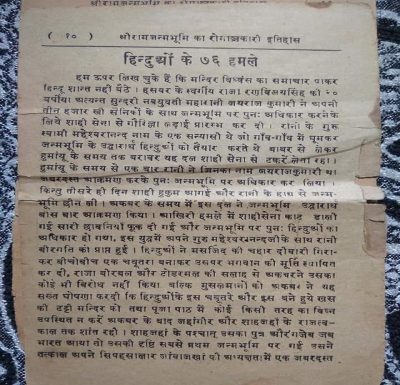 श्रीरामजन्मभूमि का रोमाञ्चकारी इतिहास
( १० ) श्रीरामजन्मभूमि का रोमाञ्चकारी इतिहास
हिन्दुओं के ७६ हमले
हम ऊपर लिख चुके हैं कि मन्दिर विध्वंस का समाचार पाकर
हिन्दू शान्त नहीं बैठे। हसवर के स्वर्गीय राजा रणविजयसिंह की २०
वर्षीया अत्यन्त सुन्दरी नवयुवती महारानी जयराज कुमारी ने अपनी
तीन हजार स्त्री सैनिकों के साथ जन्मभूमि पर पुनः अधिकार करने के
लिये शाही सेना से गोरिल्ला लड़ाई प्रारम्भ कर दी। रानी के गुरू
स्वामी महेश्वरानन्द नाम के एक सन्यासी थे जो गाँव-गाँव में घूमकर
जन्मभूमि के उद्धारार्थ हिन्दुओं को तैयार करते थे बाबर से लेकर
हुमायूं के समय तक बराबर यह दल शाही सेना से टक्करें लेता रहा।
हुमायूं के समय से एक बार रानी ने जिनका नाम जयराजकुमारी था
जबरदस्त आक्रमण करके पुनः जन्मभूमि पर अधिकार कर लिया।
किन्तु तीसरे ही दिन शाही कुमुक आ गई और रानी के हाथ से जन्म-
भूमि छीन ली। अकबर के समय में इस दल ने जन्मभूमि उद्धारार्थ
बीस बार आक्रमण किया। आखिरी हमले में शाही सेना काट डाली
गई सारी छावनियाँ फूक दी गई और जन्मभूमि पर पुनः हिन्दुओं का
अधिकार हो गया, इस युद्ध में अपने गुरु महेश्वरनन्दजी के साथ रानी
वीरगति को प्राप्त हुई। हिन्दुओं ने मसजिद की चहार दीवारी गिरा-
कर बीचोबीच एक चबूतरा बनाकर उसपर भगवान की मूर्ति स्थापित
कर दी, राजा बीरबल और टोडरमल की सलाह से अकबर ने उसका
कोई भी विरोध नहीं किया बल्कि मुसलमानों को अकबर ने यह
सख्त घोषणा करदी कि हिन्दुओं के इस चबूतरे और इस बने हुये खस
की टट्टी मन्दिर की तथा पूजा पाठ में कोई किसी तरह का विघ्न
उपस्थित न करें अकबर के बाद जहांगीर और शाहजहां के राजत्व-
काल तक शांत रही। शाहजहां के पश्चात् उसका पुत्र औरंगजेब जब
भारत आया तो उसकी दृष्टि सबसे प्रथम जन्मभूमि पर गई उसने
तत्काल अपने सिपहसालार जांबाजखां की अध्यक्षता में एक जबरदस्त